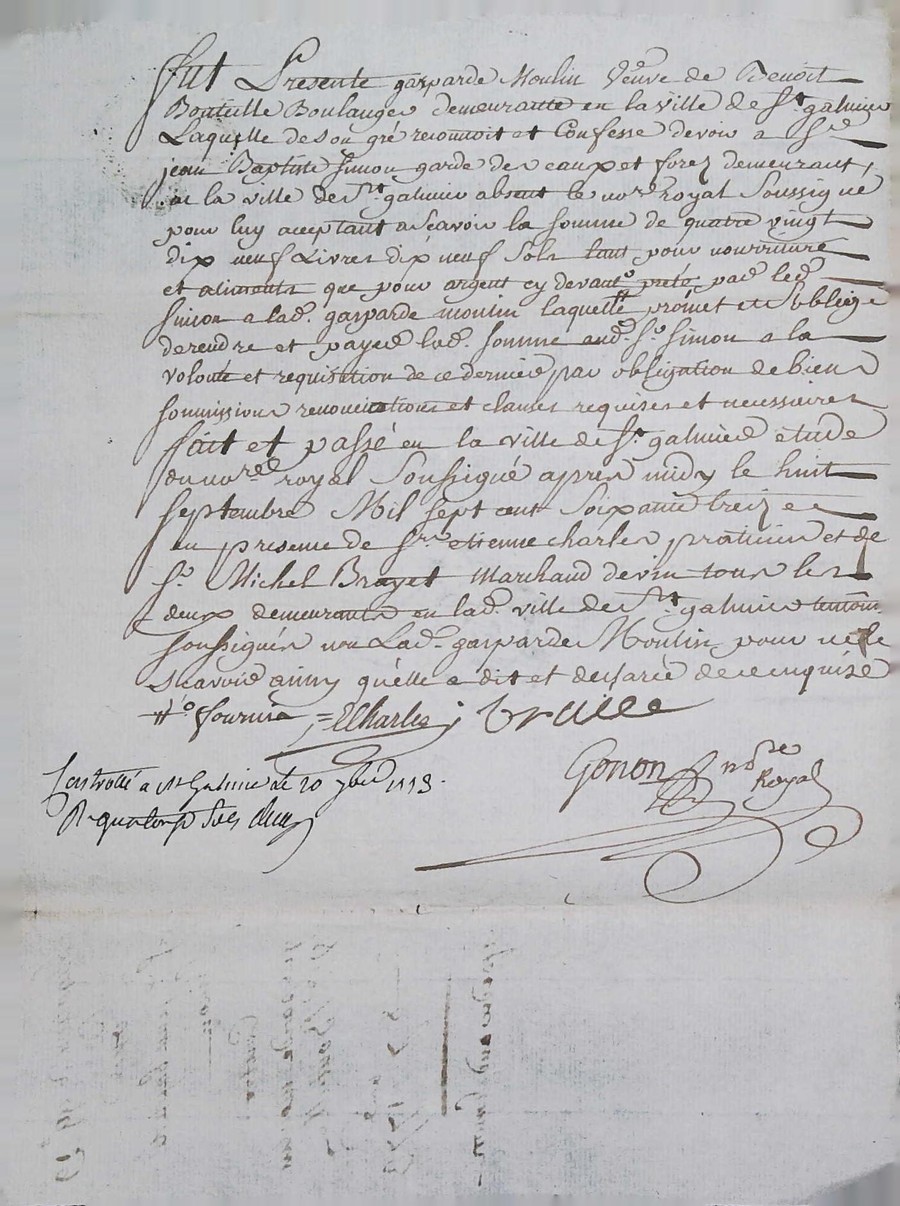 Fut Presente gasparde Moulin Veuve de Benoit
Bouteille Boulanger demeurante en la ville de St. galmier
Laquelle de son gré reconnoit et Confesse devoir a Sr.
jean Baptiste Simon garde des eaux et forez demeurant
en la ville de St. galmier absent le nore Royal Soussigné
pour luy aceptant a Scavoir la Somme de quatre vingt
dix neuf Livres dix neuf Sols tant pour nourriture
et aliments que pour argent cy devant preté par led.
Simon a lad. gasparde moulin laquelle promet et s'oblige
de rendre et payer lad. Somme aud. Sr. Simon a la
volonté et requisition de ce dernier par obligation de biens
Soumissions renonciations et clauses requises et necessaires
fait et passé en la ville de St. galmier etude
du nore royal Soussigné apres midy le huit
Septembre Mil Sept cent Soixante treize
en presence de Sr. etienne charles praticien et de
Sr. Michel Brayet Marchand devin tous les
deux demeurants en lad. ville de St. galmier temoins
soussignés non Lad. gasparde Moulin pour ne le
scavoir ainsy qu'elle a dit et declaré de ce enquise
fournie ECharles
Gonon nore
Royal
Controllé a St Galmier le 20 7bre 1773.
R. quatorze Sols